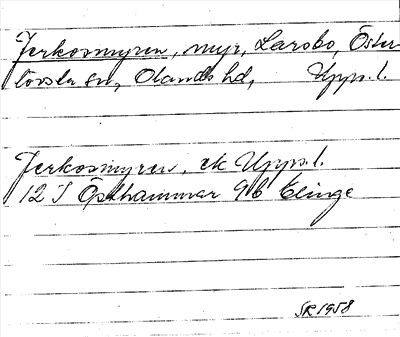 Jerkosmyren, myr, Larsbo, Öster
lövsta sn, Olands hd, Upps. l.
Jerkosmyren, ek Upps. l.
12 I Östhammar 9b Elinge
SR 1958